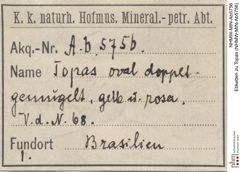 K. k. naturh. Hofmus. Mineral.-petr. Abt.
Akq.-Nr. A.b. 575b.
Name Topas oval doppelt
gemugelt, gelb u. rosa.
V. d. N. 68.
Fundort Brasilien
1.
NHMW-MIN-Ab5756
Etiketten zu Topas (NHMW-MIN-Ab5756)